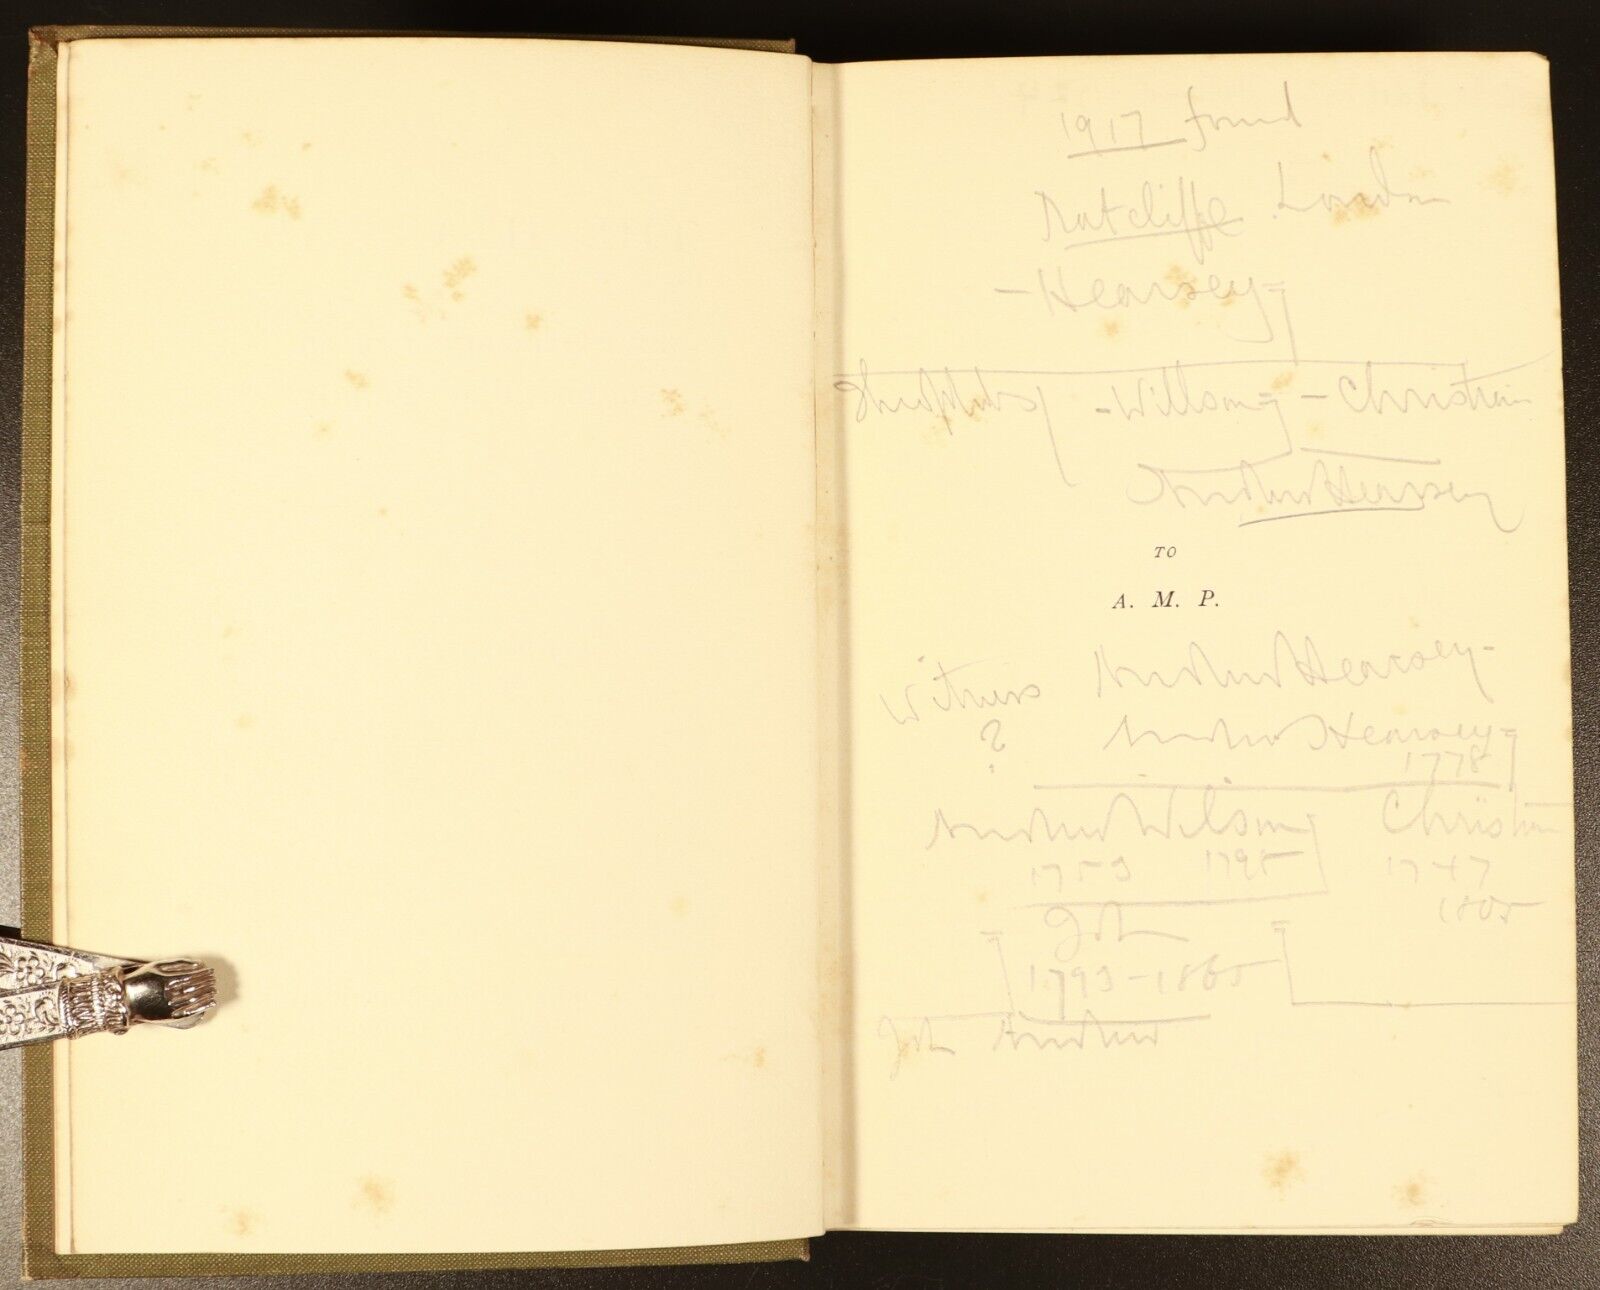 1917 found
Ratcliffe London
- Hearsey =
- Willson = - Christian
Andrew Hearsey
TO
A. M. P.
Witness Andrew Hearsey -
? Andrew Hearsey =
1778
Andrew Wilson = Christian
1753 1795 1747
1805
= John =
1793 - 1865
John Andrew